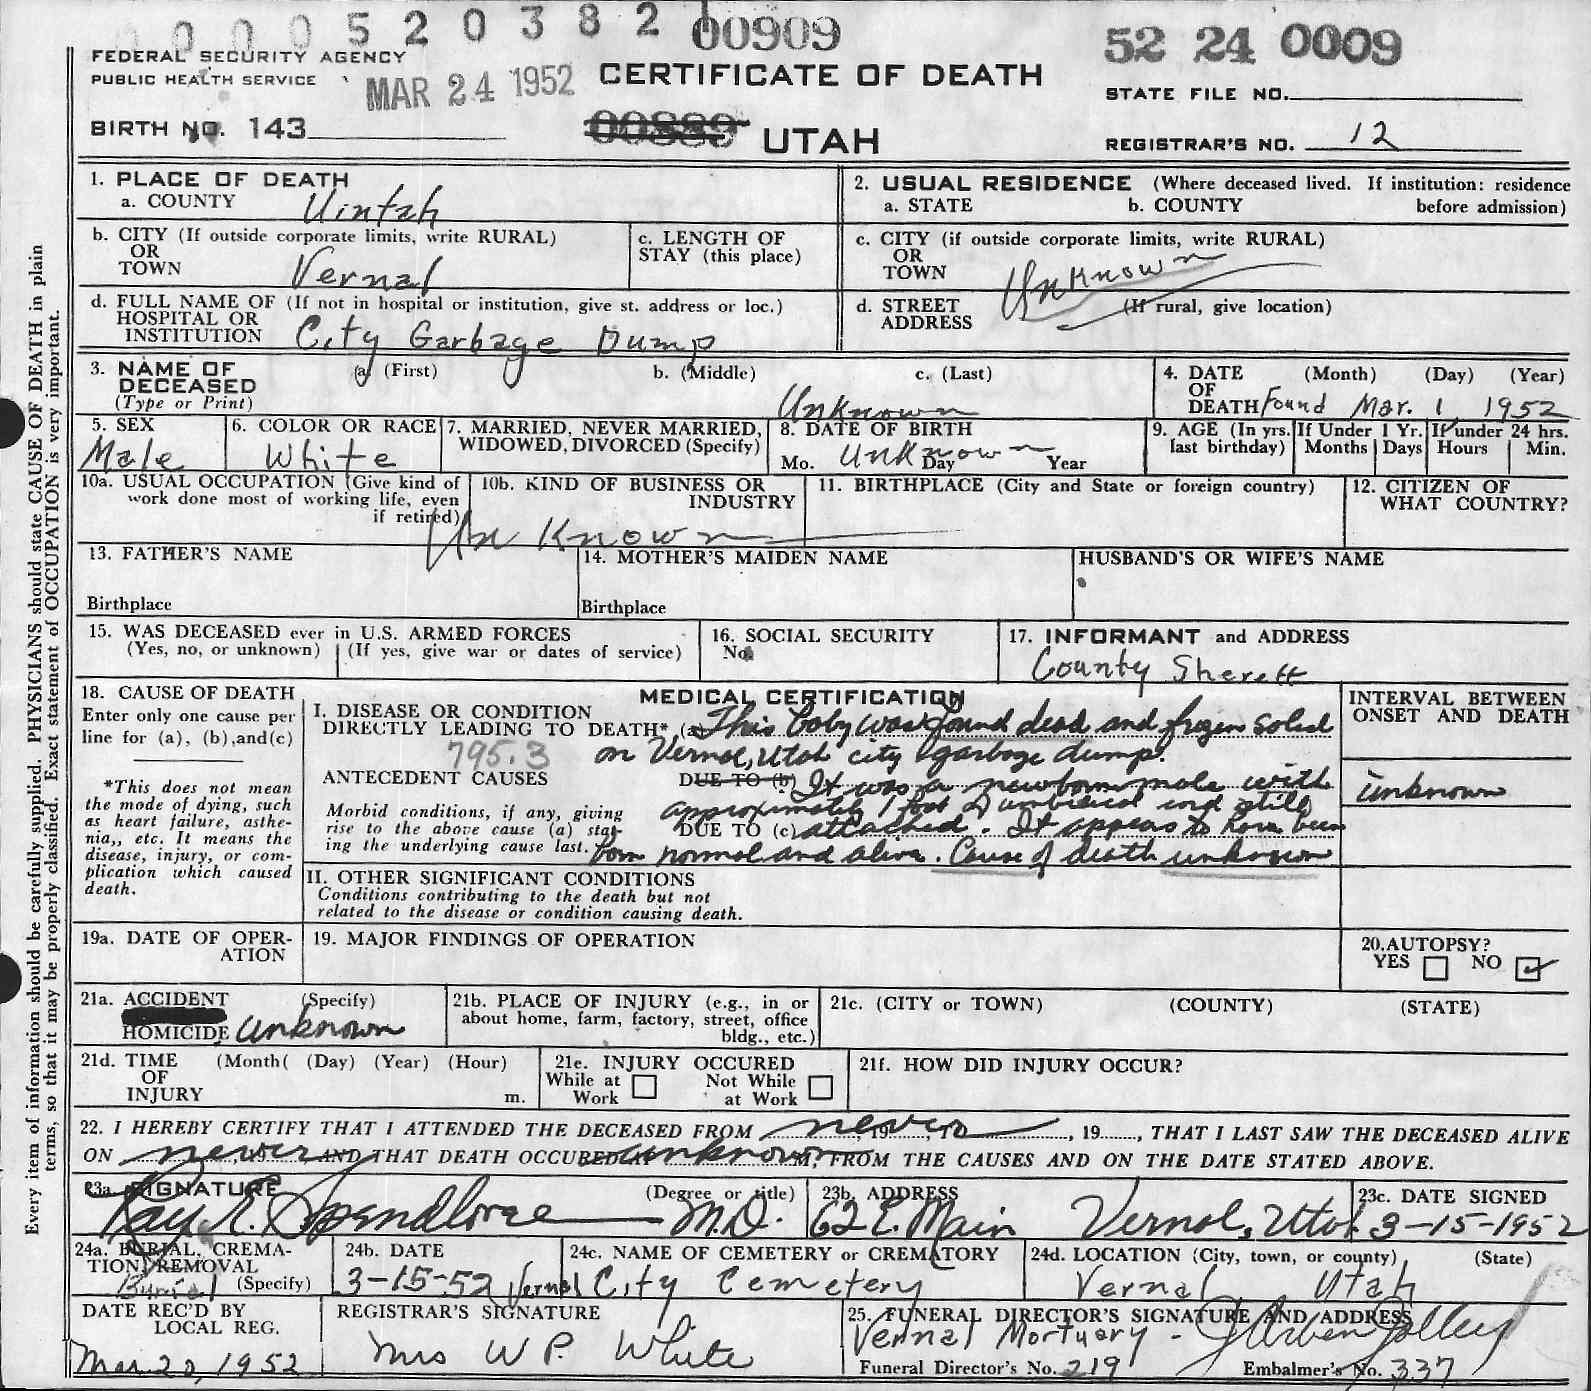 0000520382 00909
52 24 0009
FEDERAL SECURITY AGENCY
PUBLIC HEALTH SERVICE
MAR 24 1952
CERTIFICATE OF DEATH
STATE FILE NO.
BIRTH NO. 143
UTAH
REGISTRAR'S NO. 12
Every item of information should be carefully supplied. PHYSICIANS should state CAUSE OF DEATH in plain
terms, so that it may be properly classified. Exact statement of OCCUPATION is very important.
1. PLACE OF DEATH
a. COUNTY Uintah
2. USUAL RESIDENCE (Where deceased lived. If institution: residence
a. STATE b. COUNTY before admission)
b. CITY (If outside corporate limits, write RURAL)
OR
TOWN Vernal
c. LENGTH OF
STAY (this place)
c. CITY (if outside corporate limits, write RURAL)
OR
TOWN Unknown
d. FULL NAME OF (If not in hospital or institution, give st. address or loc.)
HOSPITAL OR
INSTITUTION City Garbage Dump
d. STREET (If rural, give location)
ADDRESS
3. NAME OF (a) (First) b. (Middle) c. (Last)
DECEASED
(Type or Print) Unknown
4. DATE (Month) (Day) (Year)
OF
DEATH Found Mar. 1 1952
5. SEX
Male
6. COLOR OR RACE
White
7. MARRIED, NEVER MARRIED,
WIDOWED, DIVORCED (Specify)
8. DATE OF BIRTH
Mo. Unknown Day Year
9. AGE (In yrs. last birthday)
If Under 1 Yr.
Months Days
If under 24 hrs.
Hours Min.
10a. USUAL OCCUPATION (Give kind of
work done most of working life, even
if retired) Unknown
10b. KIND OF BUSINESS OR
INDUSTRY
11. BIRTHPLACE (City and State or foreign country)
12. CITIZEN OF
WHAT COUNTRY?
13. FATHER'S NAME
Birthplace
14. MOTHER'S MAIDEN NAME
Birthplace
HUSBAND'S OR WIFE'S NAME
15. WAS DECEASED ever in U.S. ARMED FORCES
(Yes, no, or unknown) (If yes, give war or dates of service)
16. SOCIAL SECURITY
No.
17. INFORMANT and ADDRESS
County Shereff
18. CAUSE OF DEATH
Enter only one cause per
line for (a), (b), and (c)
*This does not mean
the mode of dying, such
as heart failure, asthe-
nia,, etc. It means the
disease, injury, or com-
plication which caused
death.
MEDICAL CERTIFICATION
I. DISEASE OR CONDITION
DIRECTLY LEADING TO DEATH* (a) This baby was found dead and frozen solid
795.3 on Vernal, Utah city garbage dump.
ANTECEDENT CAUSES DUE TO (b) It was a newborn male with
Morbid conditions, if any, giving approximately 1 foot of umbilical cord still
rise to the above cause (a) stat- DUE TO (c) attached. It appears to have been
ing the underlying cause last. born normal and alive. Cause of death unknown
INTERVAL BETWEEN
ONSET AND DEATH
unknown
II. OTHER SIGNIFICANT CONDITIONS
Conditions contributing to the death but not
related to the disease or condition causing death.
19a. DATE OF OPER-
ATION
19. MAJOR FINDINGS OF OPERATION
20. AUTOPSY?
YES NO ✓
21a. ACCIDENT (Specify)
HOMICIDE unknown
21b. PLACE OF INJURY (e.g., in or
about home, farm, factory, street, office
bldg., etc.)
21c. (CITY or TOWN) (COUNTY) (STATE)
21d. TIME (Month( (Day) (Year) (Hour)
OF
INJURY m.
21e. INJURY OCCURED
While at Work Not While at Work
21f. HOW DID INJURY OCCUR?
22. I HEREBY CERTIFY THAT I ATTENDED THE DECEASED FROM never, 19......, TO ......, 19......, THAT I LAST SAW THE DECEASED ALIVE
ON never, AND THAT DEATH OCCURED AT unknown M, FROM THE CAUSES AND ON THE DATE STATED ABOVE.
23a. SIGNATURE (Degree or title)
Ray E. Spendlove M.D.
23b. ADDRESS
62 E. Main Vernal, Utah
23c. DATE SIGNED
3-15-1952
24a. BURIAL, CREMA-
TION, REMOVAL
Burial (Specify)
24b. DATE
3-15-52
24c. NAME OF CEMETERY or CREMATORY
Vernal City Cemetery
24d. LOCATION (City, town, or county) (State)
Vernal Utah
DATE REC'D BY
LOCAL REG.
Mar 20, 1952
REGISTRAR'S SIGNATURE
Mrs W P. White
25. FUNERAL DIRECTOR'S SIGNATURE AND ADDRESS
Vernal Mortuary -
Funeral Director's No. 219 Embalmer's No. 337